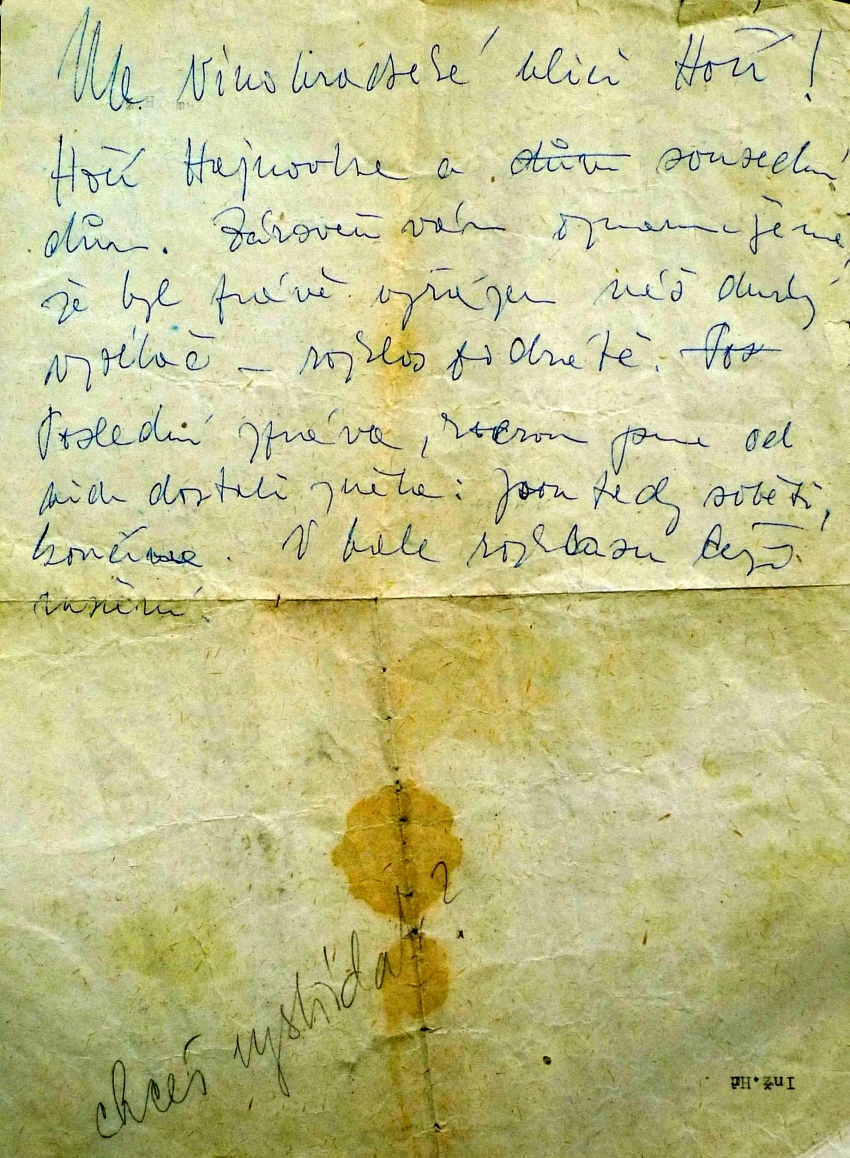 Na Vinohradské ulici Hoří!
Hoří Hajnovka a dům sousední
dům. Zároveň vám oznamujeme,
že byl právě vyřazen náš druhý
vysílač – rozhlas po drátě. Pos
Poslední zpráva, kterou jsme od
nich dostali zněla: Jsou tedy sověti,
končíme. V hale rozhlasu leží
ranění
chceš vystřídat?
Inž.Hü